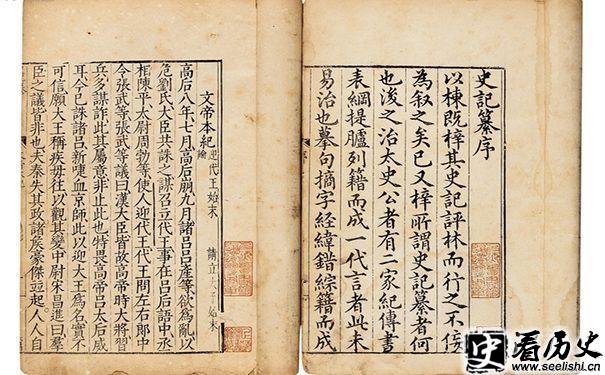 史記纂序
以棟既梓其史記評林而行之不佞
為叙之矣已又梓所謂史記纂者何
也淩之治太史公者有二家紀傳書
表綱提臚列籍而成一代言者此未
易治也摹句摘字經緯錯綜籍而成
文帝本紀 迎代王始末 請立 始末
高后八年七月高后崩九月諸呂呂產等欲為亂以
危劉氏大臣共誅之謀召立代王事在呂后語中丞
相陳平太尉周勃等使人迎代王代王問左右郎中
令張武等張武等議曰漢大臣皆故高帝時大將習
兵多謀詐此其屬意非止此也特畏高帝呂太后威
耳今已誅諸呂新啑血京師此以迎大王為名實不
可信願大王稱疾毋往以觀其變中尉宋昌進曰羣
臣之議皆非也夫秦失其政諸侯豪傑竝起人人自
史看历史
www.seelishi.com